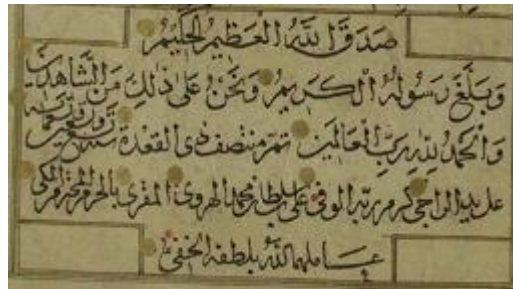 صَدَقَ اللّٰهُ الْعَظِيمُ الْحَلِيمُ
وَبَلَّغَ رَسُولُهُ الْكَرِيمُ وَنَحْنُ عَلَىٰ ذٰلِكَ مِنَ الشَّاهِدِينَ
وَالْحَمْدُ لِلّٰهِ رَبِّ الْعَالَمِينَ تم منتصف ذى القعدة سنة
على يد الراجى كرم ربه الوفى على بن سلطان محمد الهروى المقرى بالحرم المحترم المكى
عاملهما الله بلطفه الخفى